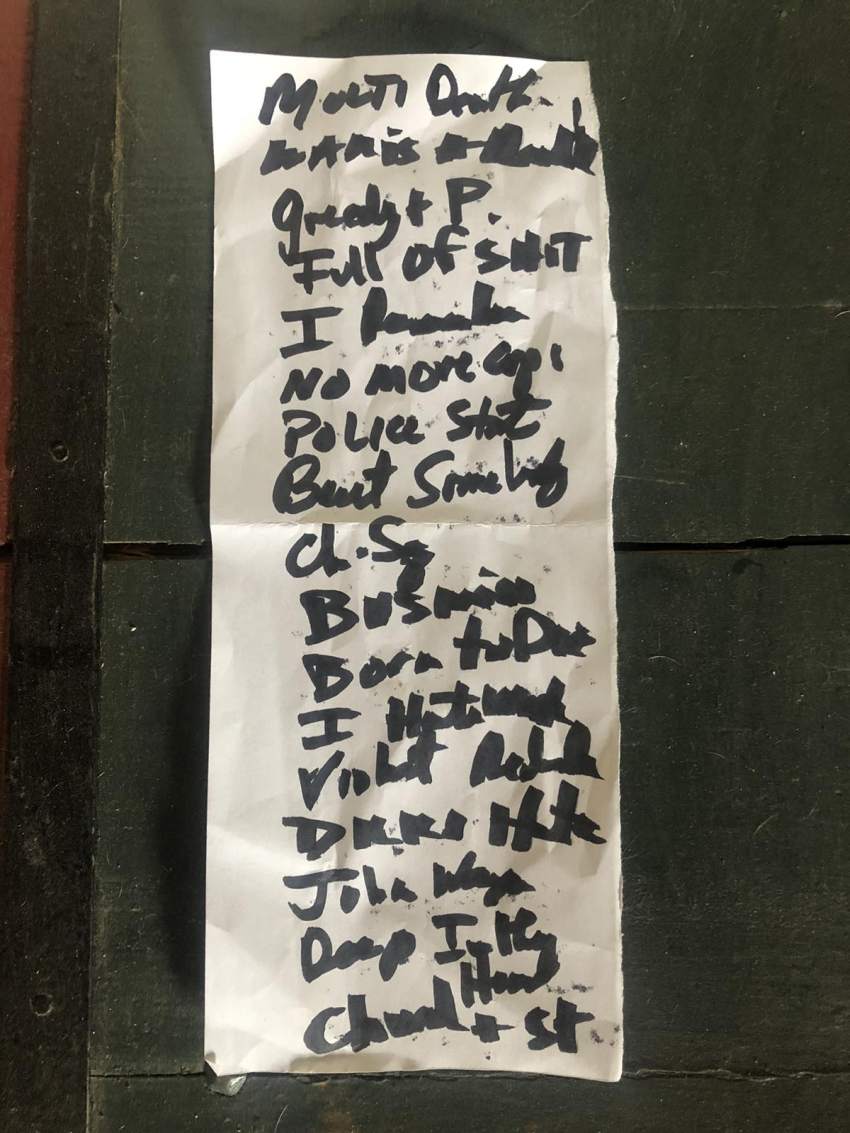 MULTI Death
Greedy + P.
Full OF SHIT
I Remember
NO MORE cops
POLICE Stat
Beat Somebody
Ch. Sq
Business
Born to Die
I Hate work
Violent
DKKS Hate
John Wayne
Deep In My
Heart
Church + St